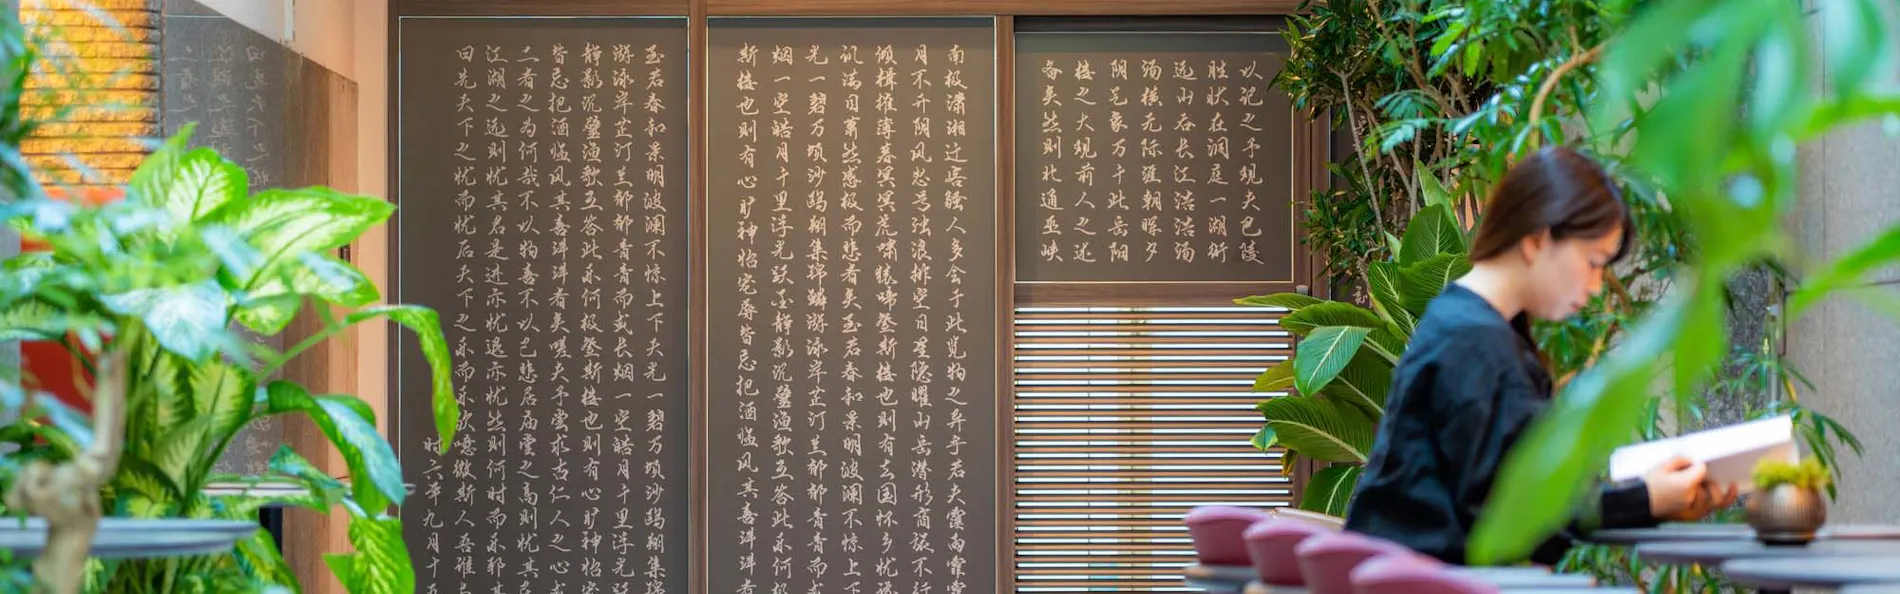 以记之予观夫巴陵
胜状在洞庭一湖衔
远山吞长江浩浩汤
汤横无际涯朝晖夕
阴气象万千此岳阳
楼之大观前人之述
备矣然则北通巫峡
南极潇湘迁客骚人多会于此览物之异乎若夫霪雨霏霏
月不开阴风怒号浊浪排空日星隐曜山岳潜形商旅不行
倾楫摧薄暮冥冥虎啸猿啼登斯楼也则有去国怀乡忧谗
讥满目萧然感极而悲者矣至若春和景明波澜不惊上下
光一碧万顷沙鸥翔集锦鳞游泳岸芷汀兰郁郁青青而或
烟一空皓月千里浮光跃金静影沉璧渔歌互答此乐何极
斯楼也则有心旷神怡宠辱皆忘把酒临风其喜洋洋者
至若春和景明波澜不惊上下天光一碧万顷沙鸥翔集锦
游泳岸芷汀兰郁郁青青而或长烟一空皓月千里浮光跃
静影沉璧渔歌互答此乐何极登斯楼也则有心旷神怡宠
皆忘把酒临风其喜洋洋者矣嗟夫予尝求古仁人之心或
二者之为何哉不以物喜不以己悲居庙堂之高则忧其
江湖之远则忧其君是进亦忧退亦忧然则何时而乐耶其
曰先天下之忧而忧后天下之乐而乐欤噫微斯人吾谁与
时六年九月十五